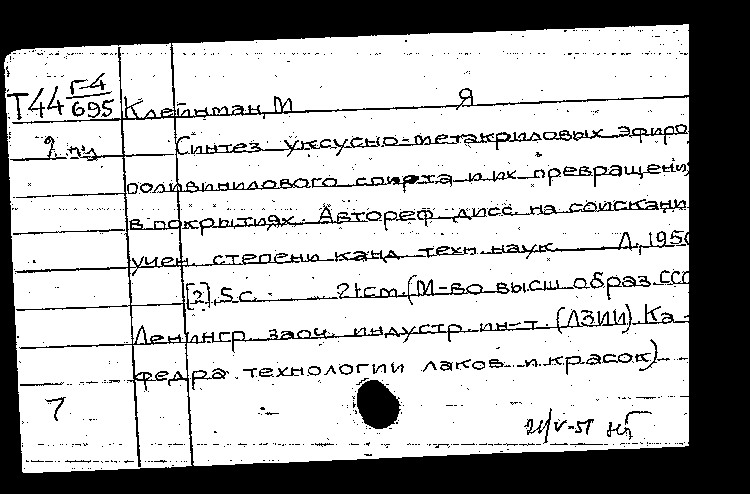 Т44 Г-4/695 Клейнман, М Я
Синтез уксусно-метакриловых эфиро
поливинилового спирта и их превращени
в покрытиях. Автореф дисс. на соискани
учен. степени канд техн. наук. Л., 195
[2], 5 с. 21cm. (М-во высш образ. ССС
Ленингр. заоч. индустр. ин-т. (ЛЗИИ). Ка-
федра технологии лаков и красок)
7